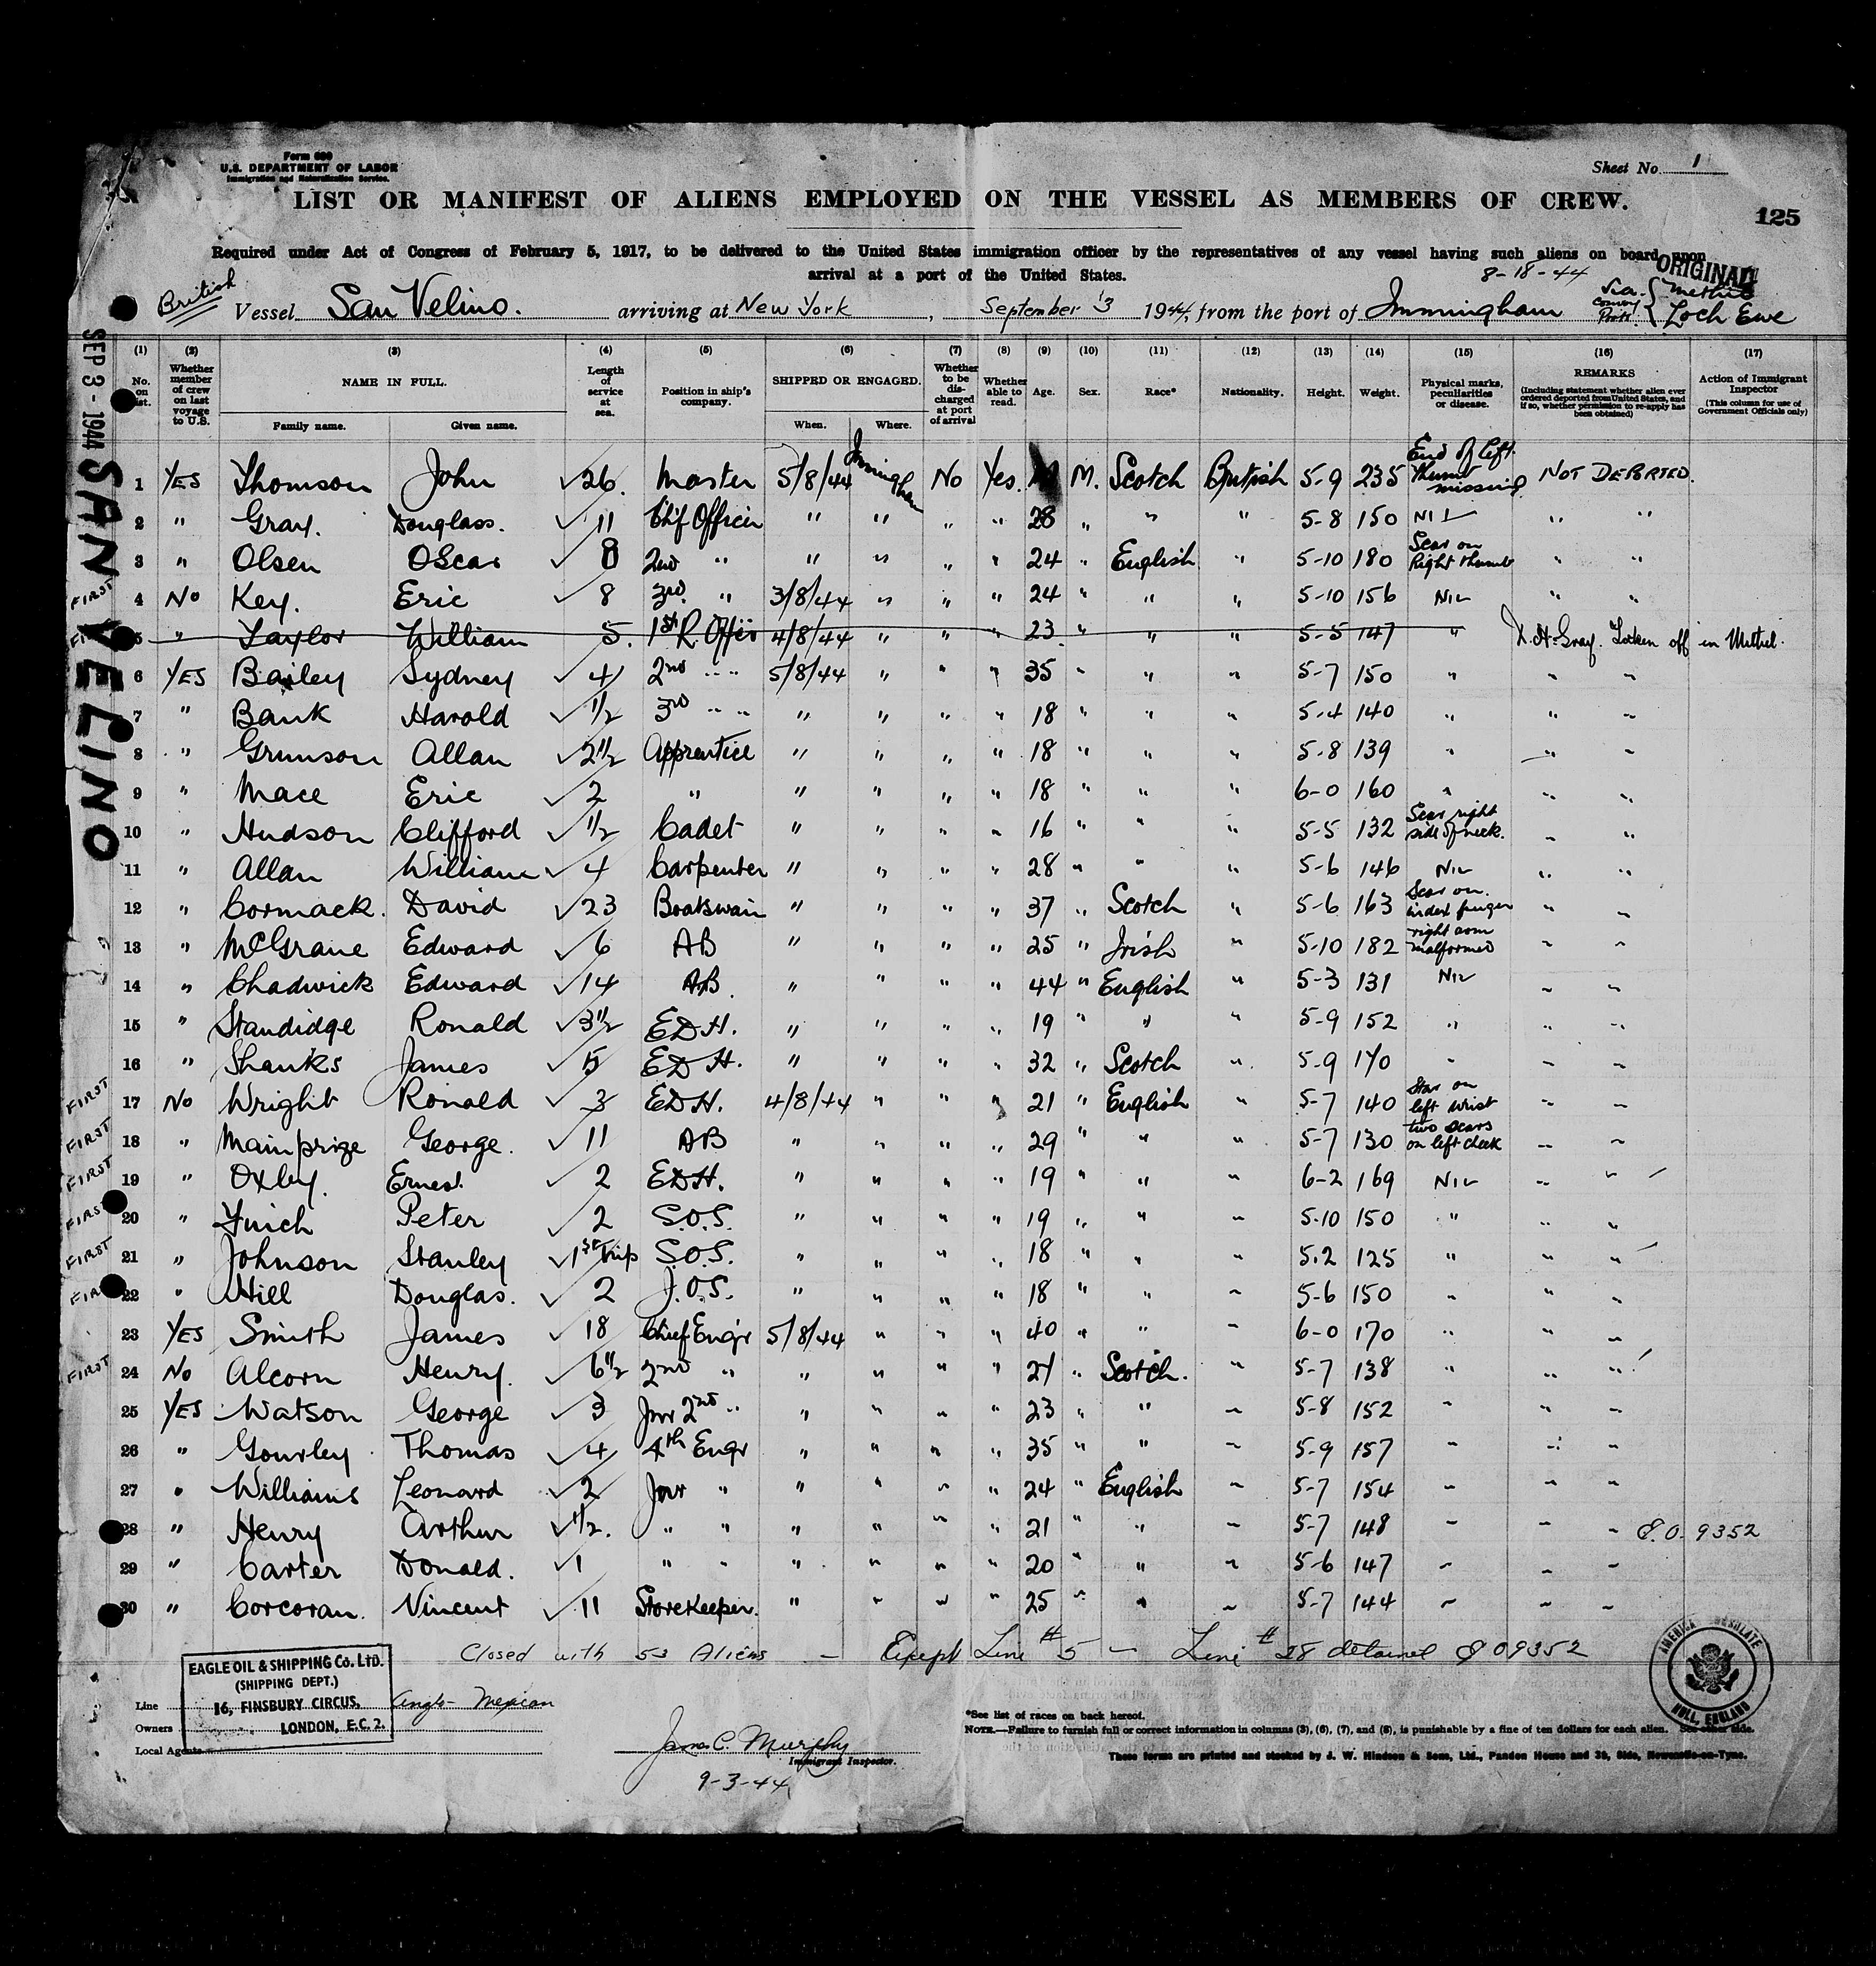 Form 680
U.S. DEPARTMENT OF LABOR
Immigration and Naturalization Service.
Sheet No. 1
LIST OR MANIFEST OF ALIENS EMPLOYED ON THE VESSEL AS MEMBERS OF CREW.
125
Required under Act of Congress of February 5, 1917, to be delivered to the United States immigration officer by the representatives of any vessel having such aliens on board upon
arrival at a port of the United States.
8-18-44
ORIGINAL
British Vessel San Velino. arriving at New York, September 3 1944, from the port of Immingham Via Convoy Ports { Methil Loch Ewe
SEP 3 - 1944 SAN VELINO
(1) (2) (3) (4) (5) (6) (7) (8) (9) (10) (11) (12) (13) (14) (15) (16) (17)
No. on list. Whether member of crew on last voyage to U.S. NAME IN FULL. Family name. Given name. Length of service at sea. Position in ship's company. SHIPPED OR ENGAGED. When. Where. Whether to be discharged at port of arrival Whether able to read. Age. Sex. Race* Nationality. Height. Weight. Physical marks, peculiarities or disease. REMARKS (Including statement whether alien ever ordered deported from United States, and if so, whether permission to re-apply has been obtained) Action of Immigrant Inspector (This column for use of Government Officials only)
1 YES Thomson John √ 26. Master 5/8/44 Immingham No Yes. M. Scotch British 5-9 235 End of left thumb missing NOT DEPORTED.
2 " Gray. Douglass. √ 11 Chif Officer " " " " 28 " " " 5-8 150 NIL " "
3 " Olsen OScar √ 8 2nd " " " " " 24 " English " 5-10 180 Scar on Right thumb " "
FIRST 4 No Key. Eric √ 8 3rd. " 3/8/44 " " " 24 " " " 5-10 156 NIL " "
5 " Taylor William 5. 1st R. Offir 4/8/44 " " " 23 " " " 5-5 147 " Taken off in Methil.
6 YES Bailey Sydney √ 4 2nd " " 5/8/44 " " " 35 " " " 5-7 150 " " "
7 " Bank Harold √ 1/2 3rd " " " " " " 18 " " " 5-4 140 " " "
8 " Grunson Allan √ 2 1/2 Apprentice " " " " 18 " " " 5-8 139 " " "
9 " Mace Eric √ 2 " " " " " 18 " " " 6-0 160 " " "
10 " Hudson Clifford √ 1/2 Cadet " " " " 16 " " " 5-5 132 Scar right side of neck. " "
11 " Allan William √ 4 Carpenter " " " " 28 " " " 5-6 146 NIL " "
12 " Cormack. David √ 23 Boatswain " " " " 37 " Scotch " 5-6 163 Scar on index finger " "
13 " McGrane Edward √ 6 AB " " " " 25 " Irish " 5-10 182 right arm malformed " "
14 " Chadwick Edward √ 14 AB " " " " 44 " English " 5-3 131 NIL " "
15 " Standidge Ronald √ 3 1/2 EDH. " " " " 19 " " " 5-9 152 " " "
16 " Shanks James √ 5 EDH. " " " " 32 " Scotch " 5-9 170 " " "
FIRST 17 No Wright Ronald √ 3 EDH. 4/8/44 " " " 21 " English " 5-7 140 Scar on left wrist " "
FIRST 18 " Mainprize George. √ 11 AB " " " " 29 " " " 5-7 130 two scars on left cheek " "
FIRST 19 " Oxley. Ernest. √ 2 EDH. " " " " 19 " " " 6-2 169 NIL " "
FIRST 20 " Finch Peter √ 2 S.O.S. " " " " 19 " " " 5-10 150 " " "
FIRST 21 " Johnson Stanley √ 1st Trip S.O.S. " " " " 18 " " " 5-2 125 " " "
FIRST 22 " Hill Douglas. √ 2 J.O.S. " " " " 18 " " " 5-6 150 " " "
23 YES Smith James √ 18 Chief Engr 5/8/44 " " " 40 " " " 6-0 170 " " "
FIRST 24 No Alcorn Henry. √ 6 1/2 2nd " " " " " " Scotch. " 5-7 138 " " "
25 YES Watson George √ 3 Jnr 2nd " " " " " 23 " " " 5-8 152 " " "
26 " Gourley Thomas √ 4 4th Engr " " " " 35 " " " 5-9 157 " " "
27 " Williams Leonard √ 2 Jnr " " " " " 24 " English " 5-7 154 " " "
28 " Henry Arthur √ 1/2. " " " " " " 21 " " " 5-7 148 " " " E.O. 9352
29 " Carter Donald. √ 1 " " " " " " 20 " " " 5-6 147 " " "
30 " Corcoran. Vincent √ 11 Storekeeper. " " " " 25 " " " 5-7 144 " " "
Closed with 53 Aliens — Except Line # 5 — Line # 28 detained EO 9352
EAGLE OIL & SHIPPING Co. LTD.
(SHIPPING DEPT.)
16, FINSBURY CIRCUS,
LONDON, E.C. 2.
Line Anglo-Mexican
Owners
Local Agents
James C. Murphy
Immigrant Inspector.
9-3-44
*See list of races on back hereof.
NOTE.—Failure to furnish full or correct information in columns (3), (6), (7), and (8), is punishable by a fine of ten dollars for each alien. See other side.
These forms are printed and stocked by J. W. Hindson & Sons, Ltd., Pandon House and 39, Side, Newcastle-on-Tyne.
HULL, ENGLAND